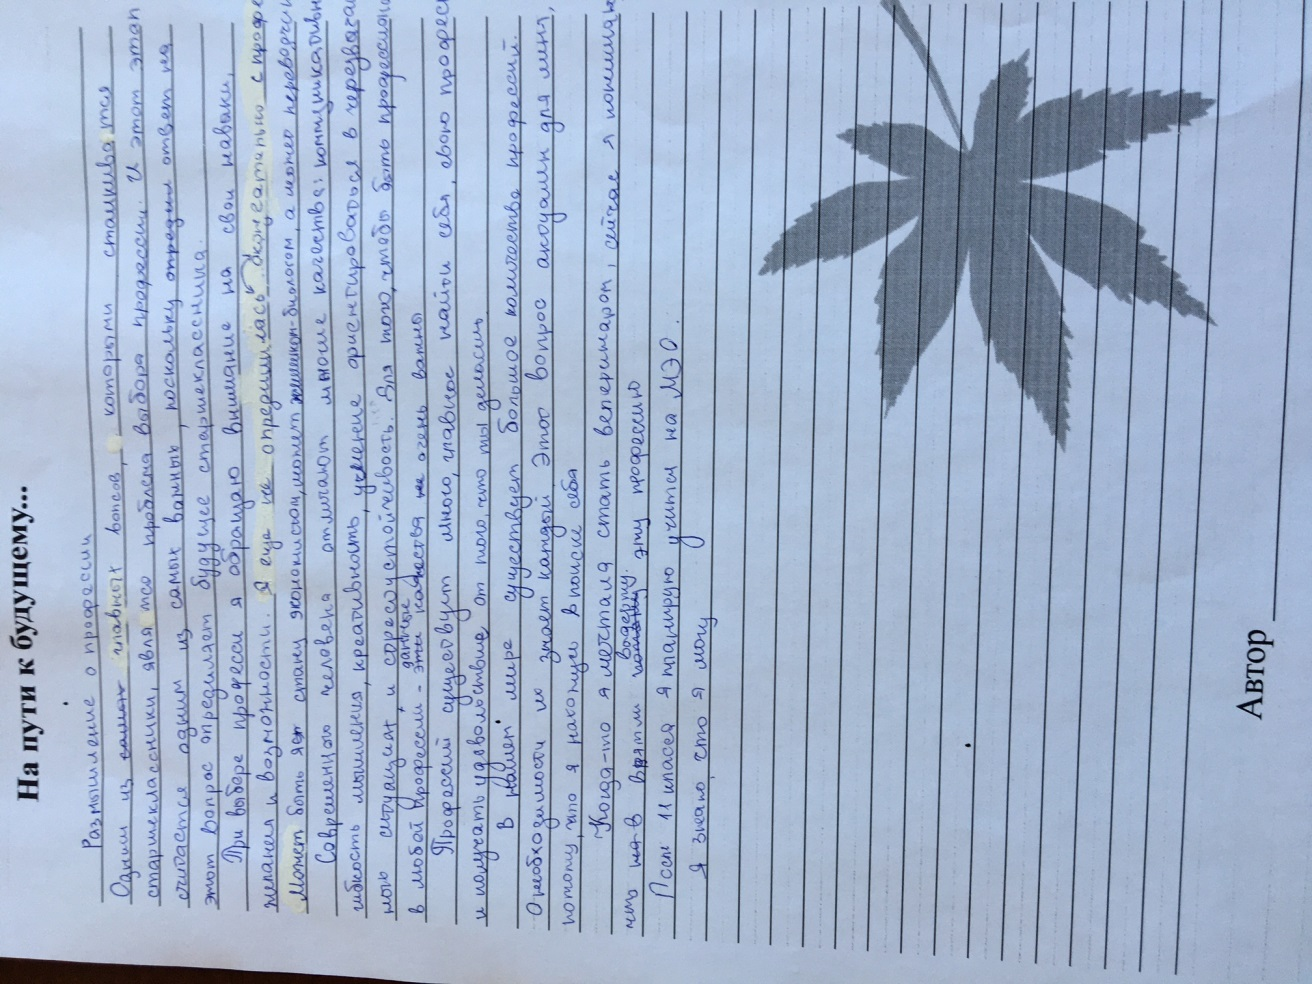 На пути к будущему...
Размышление о профессии
Одним из главных вопсов, которыми сталкиваются
старшеклассники, является проблема выбора профессии. И этот этап
считается одним из самых важных, поскольку ответ на
этот вопрос определяет будущее старшеклассника.
При выборе професси я обращаю внимание на свои навыки,
желания и возможности. Я еще не определилась окончательно с профе
Может быть я стану экономистом, может -биологом, а может переводчи
Современного человека отличают многие качества: коммуникативн
гибкость мышления, креативность, умение ориентироваться в чрезвыча
ной ситуциях, и стрессоустойчивость. Для того, чтобы быть професиона
в любой профессии - эти данные качества очень важны.
Профессий существует много, главное найти себя, свою профес
и получать удовольствие от того, что ты делаешь
В нашем мире существует большое количество профессий.
О необходимости их знает каждый. Этот вопрос актуален для меня,
потому, что я нахожусь в поиске себя
Когда-то я мечтала стать ветеринаром, сейчас я понимаю
что в эту профессию
После 11 класса я планирую учится на МЭО.
Я знаю, что я могу
Автор